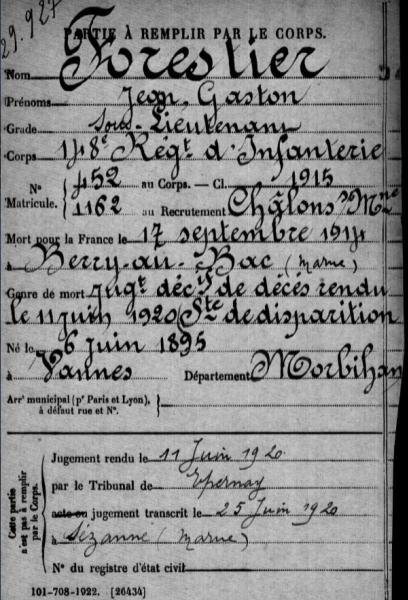 29.927
PARTIE À REMPLIR PAR LE CORPS.
Nom Forestier
Prénoms Jean, Gaston
Grade Sous-Lieutenant
Corps 148e Régt d'Infanterie
N° Matricule. { 452 au Corps. — Cl. 1915
1162 au Recrutement Châlons s/Mne
Mort pour la France le 17 septembre 1914
à Berry-au-Bac (Marne)
Genre de mort Jugt décl'f de décès rendu
le 11 juin 1920 Ste de disparition
Né le 6 Juin 1895
à Vannes Département Morbihan
Arrt municipal (pr Paris et Lyon),
à défaut rue et N°.
Cette partie n'est pas à remplir par le Corps.
Jugement rendu le 11 Juin 1920
par le Tribunal de Epernay
acte ou jugement transcrit le 25 Juin 1920
à Sézanne (Marne)
N° du registre d'état civil
101-708-1922. [26434]